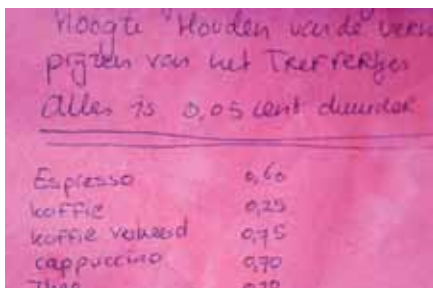 Hoogte Houden van de
prijzen van het Treffertjes
Alles is 0,05 cent duurder
Espresso 0,60
koffie 0,25
koffie verkeerd 0,75
cappuccino 0,70
Thee